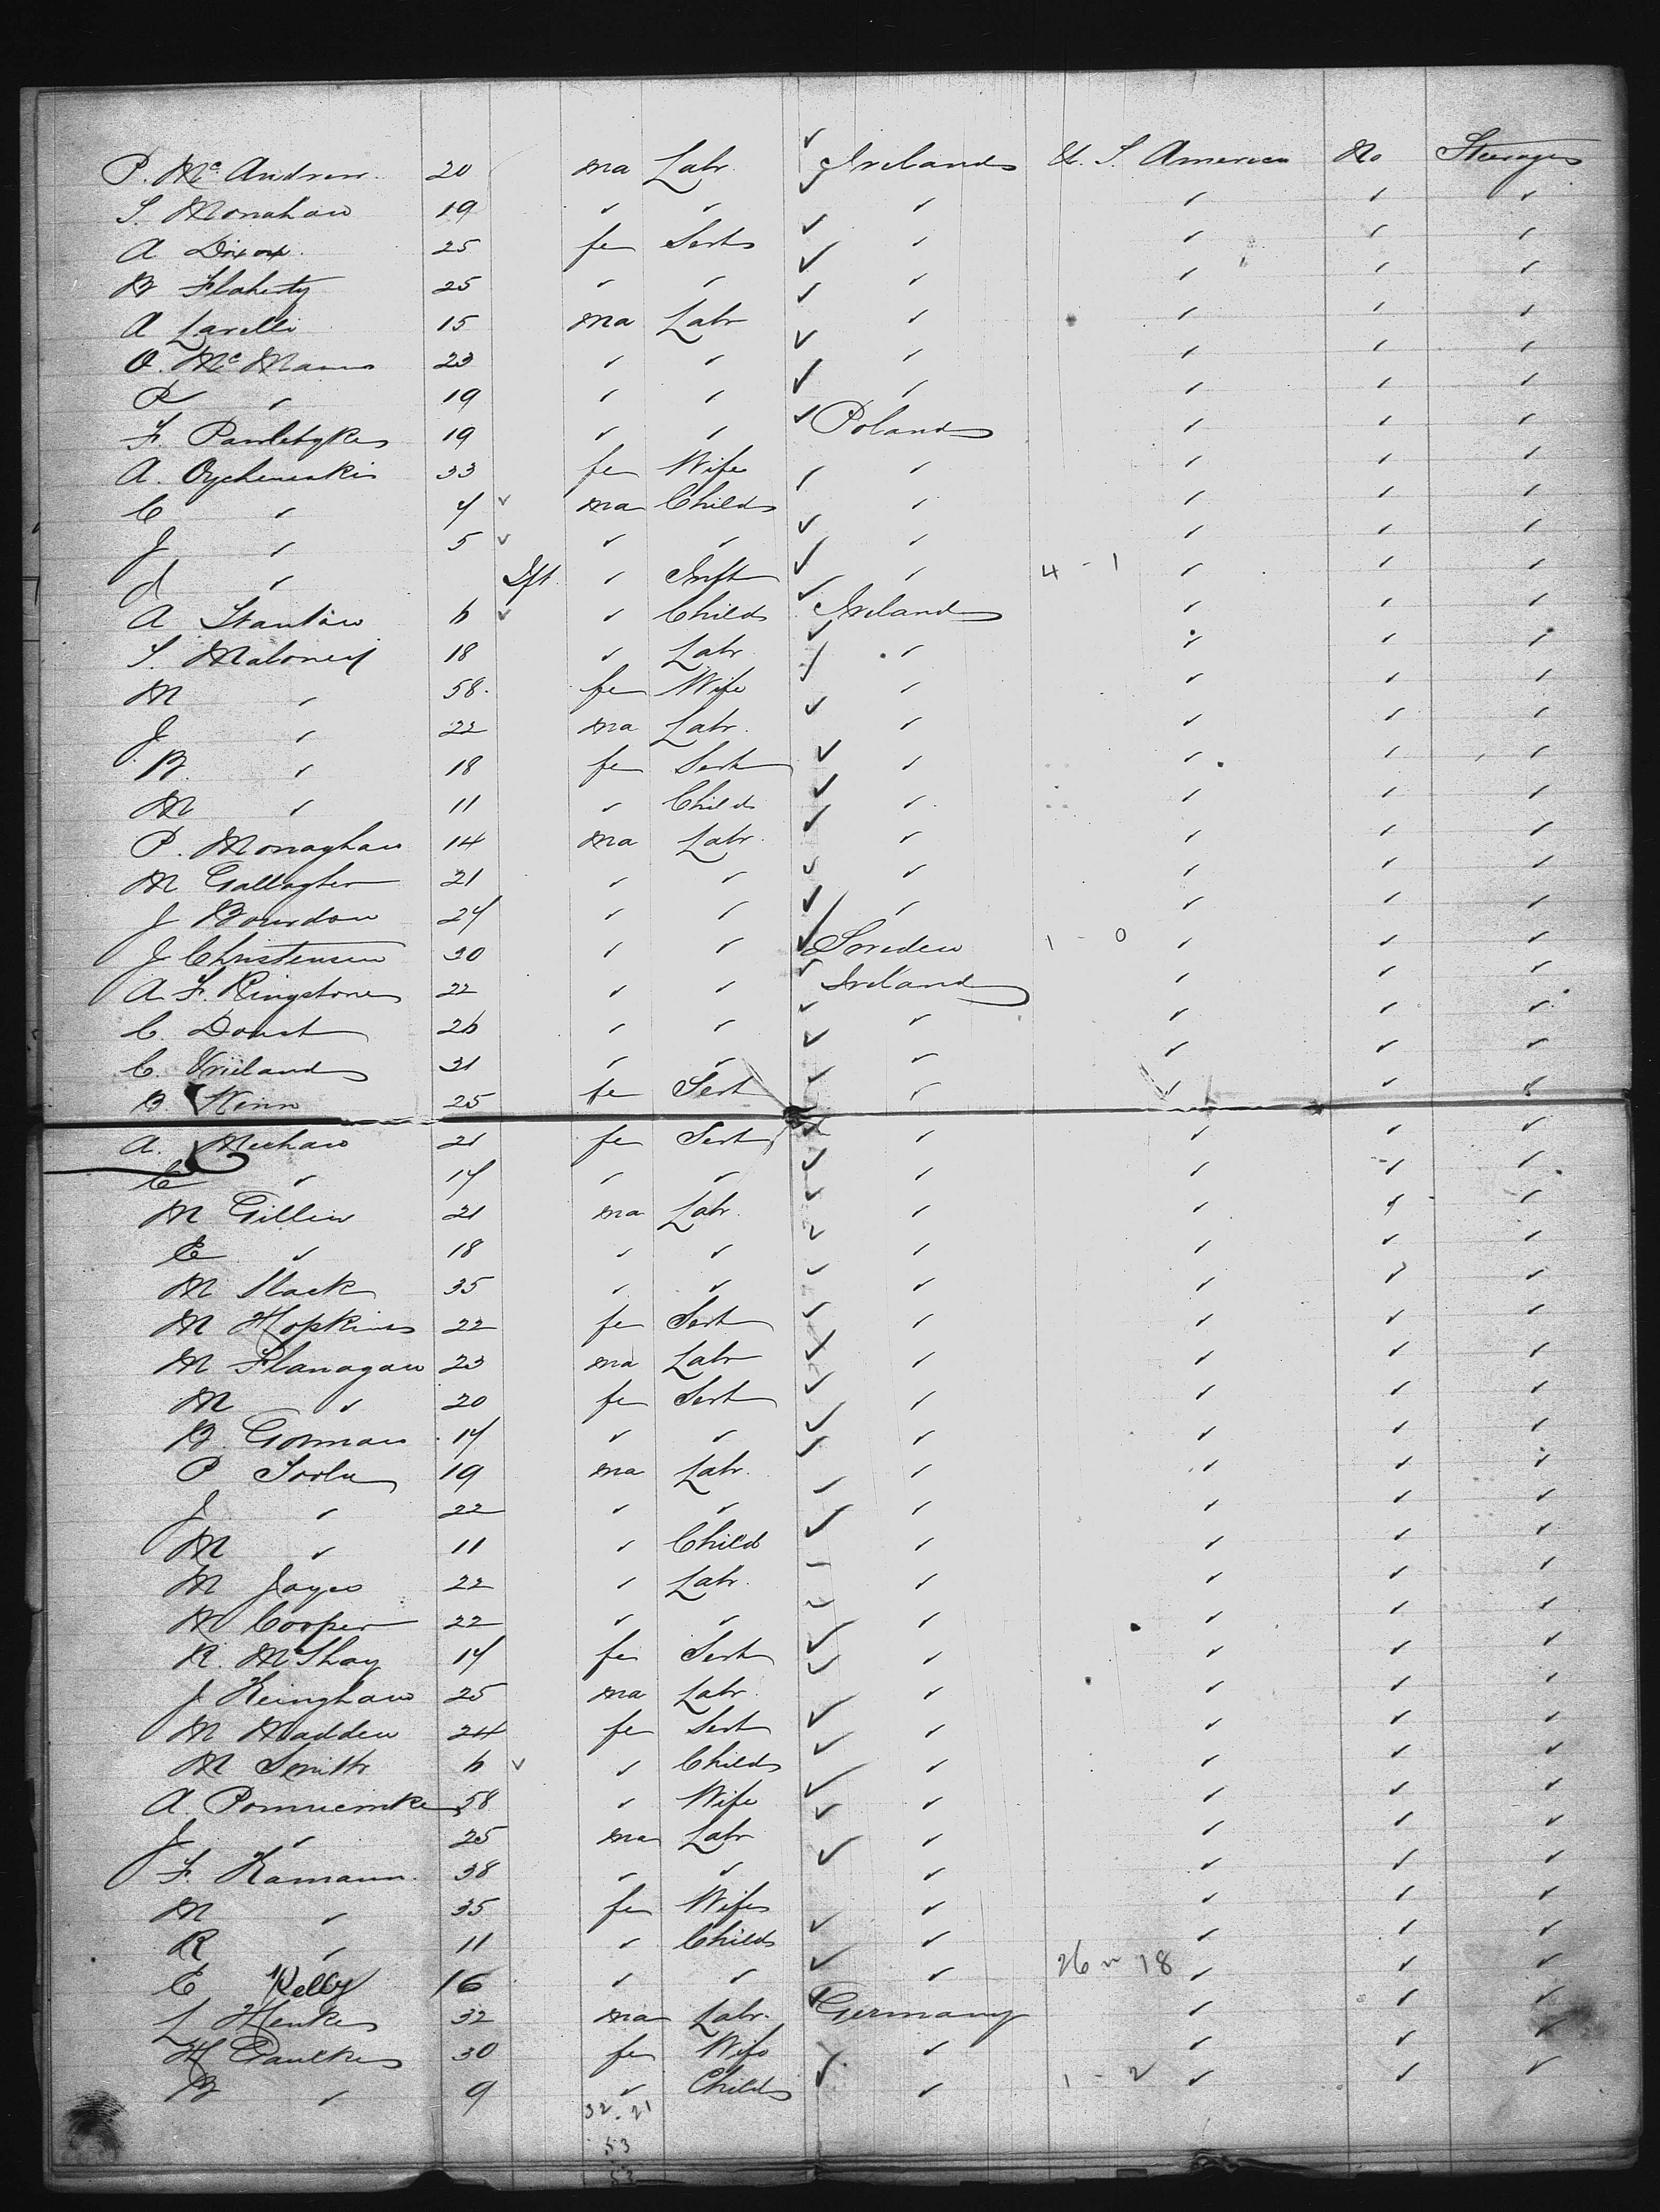 P. Mc Andrew 20 ma Labr. Ireland U. S. America No Steerage
S. Monahan 19 " " " " " "
A Dixon 25 fe Sert " " " "
B Flaherty 25 " " " " " "
A Lavelle 15 ma Labr " " " "
O. Mc Manus 23 " " " " " "
P " 19 " " " " " "
F. 19 " " Poland " " "
A. 33 fe Wife " " " "
C " 4 ma Child " " " "
J " 5 " " " " " "
J " Ift " Inft " 4 - 1 " " "
A Stanton 6 " Child Ireland " " "
S. Maloney 18 " Labr " " " "
M " 58 fe Wife " " " "
J " 22 ma Labr. " " " "
B. " 18 fe Sert " " " "
M " 11 " Child " " " "
P. Monaghan 14 ma Labr. " " " "
M Gallagher 21 " " " " " "
J Bourdon 24 " " " " " "
J Christensen 30 " " Sweden 1 - 0 " " "
A. F. Kingstone 22 " " Ireland " " "
C. Doust 26 " " " " " "
C. Vrieland 31 " " " " " "
B Kenn 25 fe Sert " " " "
A. Meehan 21 fe Sert " " " "
C " 14 " " " " " "
M Gillen 21 ma Labr. " " " "
E " 18 " " " " " "
M Slack 35 " " " " " "
M Hopkins 22 fe Sert " " " "
M Flanagan 23 ma Labr " " " "
M " 20 fe Sert " " " "
B. Gorman 14 " " " " " "
P Toole 19 ma Labr. " " " "
J " 22 " " " " " "
M " 11 " Child " " " "
M Joyce 22 " Labr. " " " "
W Cooper 22 " " " " " "
R. McShay 14 fe Sert " " " "
J Keinghan 25 ma Labr. " " " "
M Madden 24 fe Sert " " " "
M Smith 6 " Child " " " "
A. 58 " Wife " " " "
J " 25 ma Labr " " " "
F. Kamann. 38 " " " " " "
M " 35 fe Wife " " " "
R " 11 " Child " " " "
E Kelly 16 " " " 26 18 " " "
L Henke 32 ma Labr. Germany " " "
H Paulke 30 fe Wife " " " "
B " 9 " Child " 1 - 2 " " "
32. 21
53
53